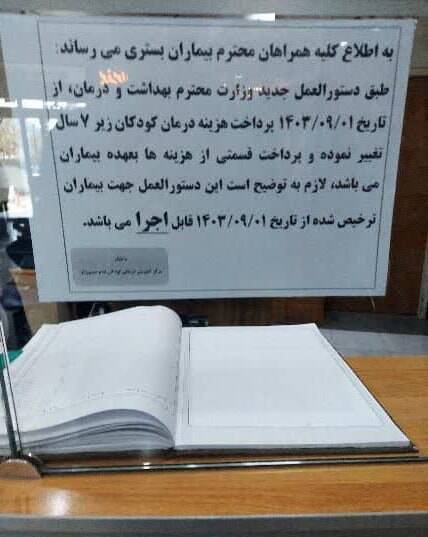 به اطلاع کلیه همراهان محترم بیماران بستری می رساند:
طبق دستورالعمل جدید وزارت محترم بهداشت و درمان، از
تاریخ ۱۴۰۳/۰۹/۰۱ پرداخت هزینه درمان کودکان زیر ۷ سال
تغییر نموده و پرداخت قسمتی از هزینه ها بعهده بیماران
می باشد، لازم به توضیح است این دستورالعمل جهت بیماران
ترخیص شده از تاریخ ۱۴۰۳/۰۹/۰۱ قابل اجرا می باشد.